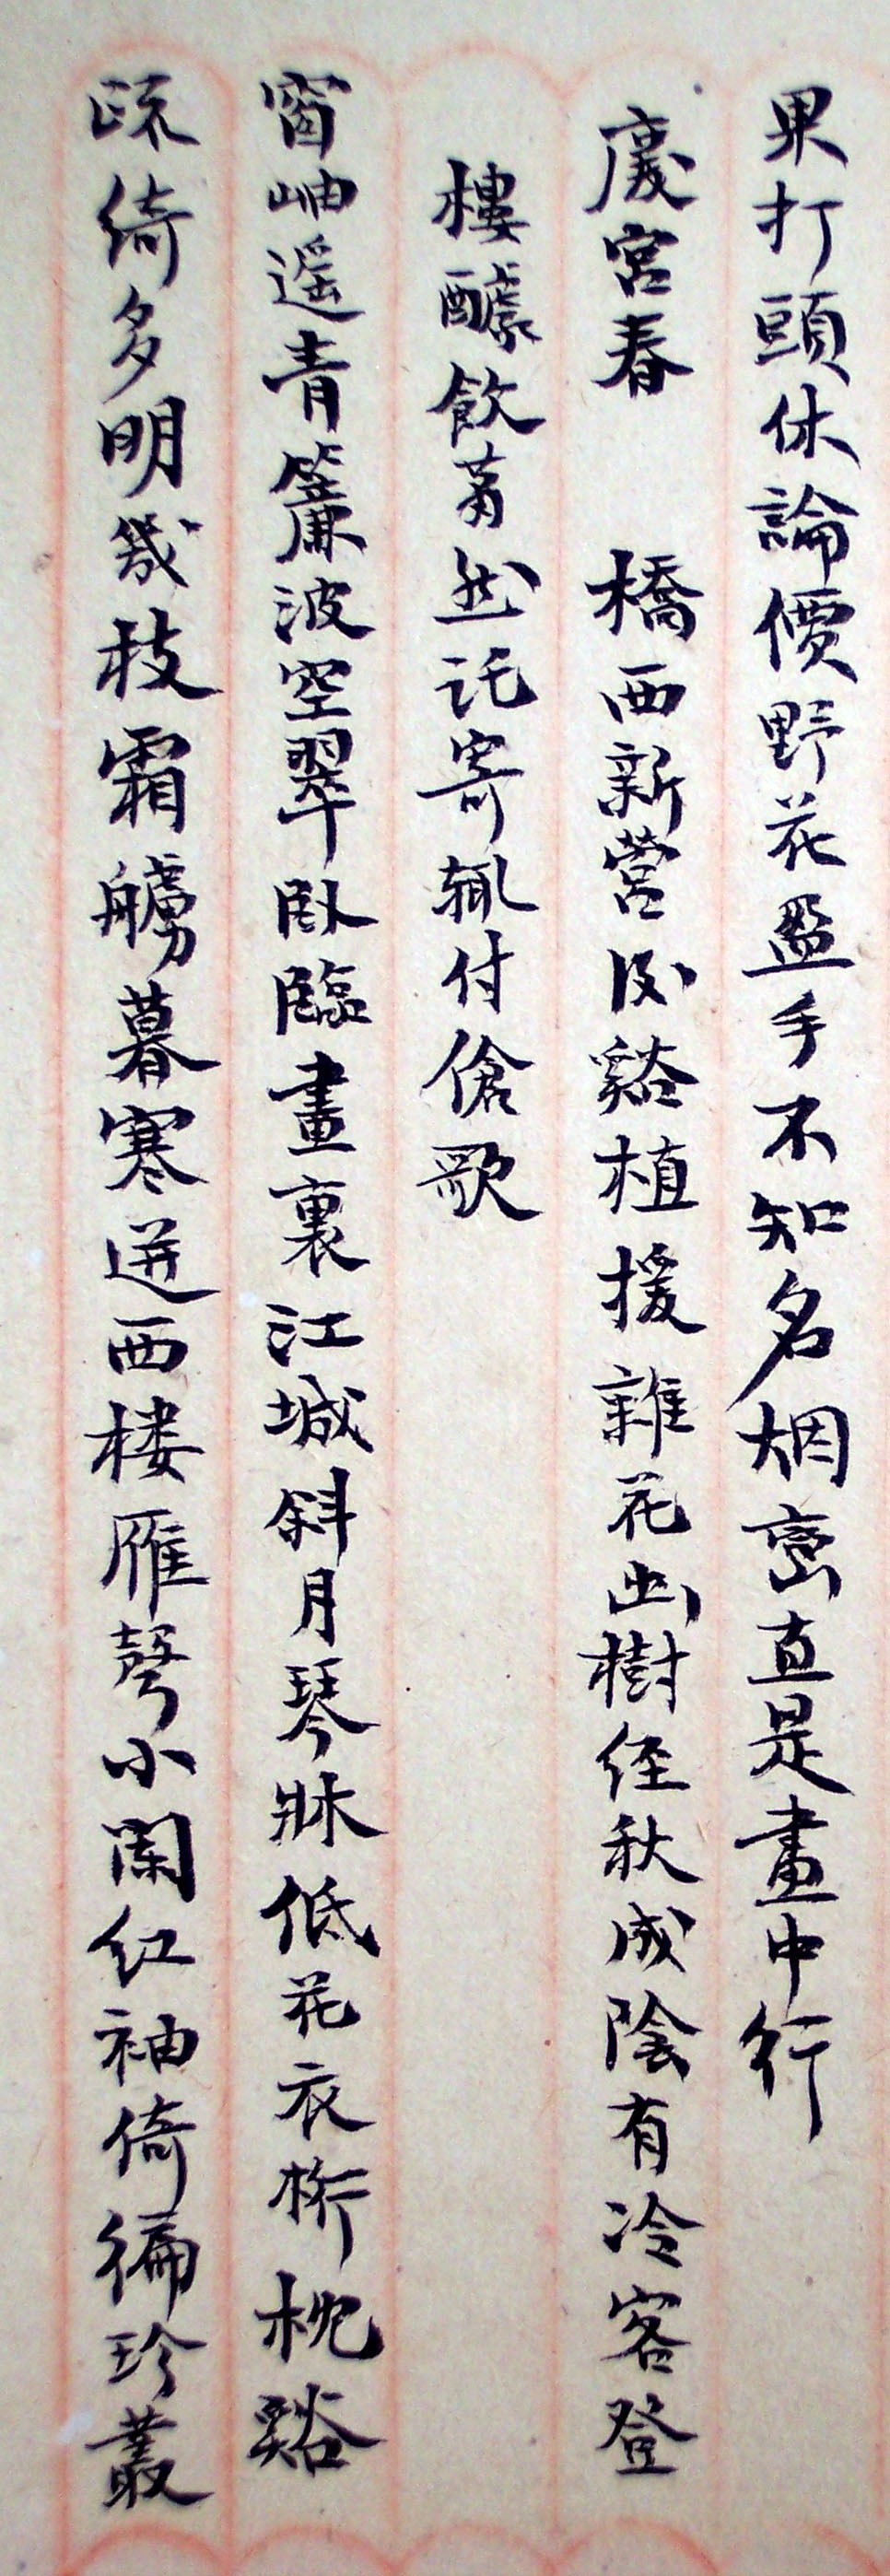 果打頭休論價野花盈手不知名烟巒直是畫中行
慶宮春 橋西新營因谿植援雜花出樹径秋成陰有冷客登
樓醵飲蕭然託寄輒付傖歌
窗岫遥青簾波空翠臥臨畫裏江城斜月琴牀低花衣桁枕谿
疏綺多明幾枝霜艣暮寒迸西楼雁聲小闌红袖倚徧珍叢